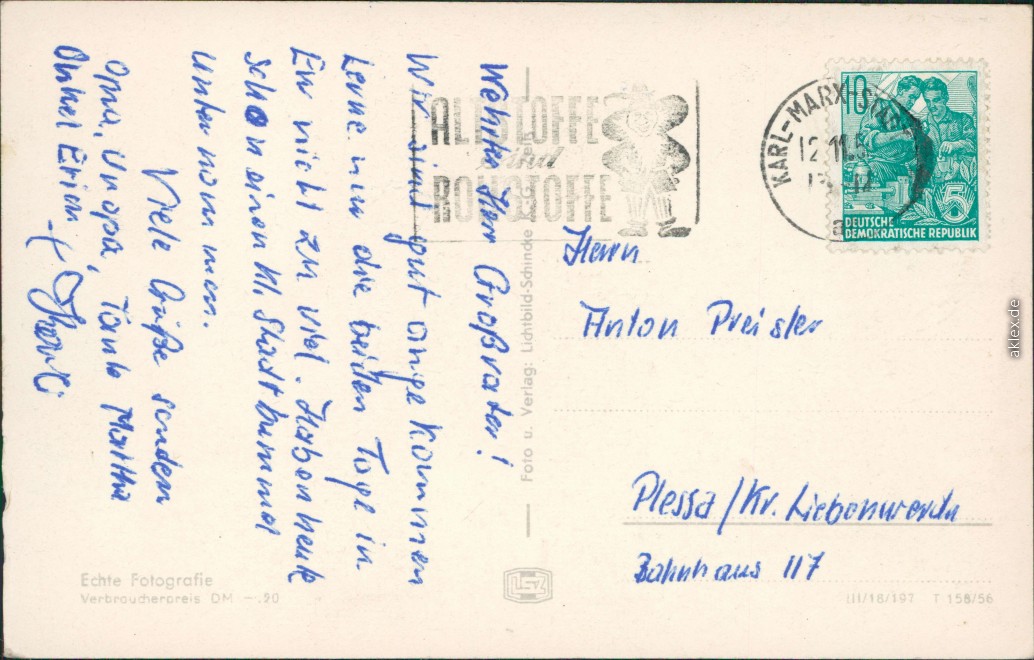 Werter Herr Großvater!
Wir sind gut angekommen
Lerne nun die beiden Tage in
nicht zu viel. Haben heute
schon einen kl. Stadtbummel
unternommen.
Viele Grüße senden
Oma, Uropa, Tante Martha
Onkel Erich
ALTSTOFFE
sind
ROHSTOFFE
KARL-MARX-STADT
12.11.5
10
5
DEUTSCHE
DEMOKRATISCHE REPUBLIK
Herrn
Anton Preisler
Plessa/Kr. Liebenwerda
Bahnhaus 117
Foto u. Verlag: Lichtbild-Schincke
Echte Fotografie
Verbraucherpreis DM –.20
III/18/197 T 158/56
aklex.de